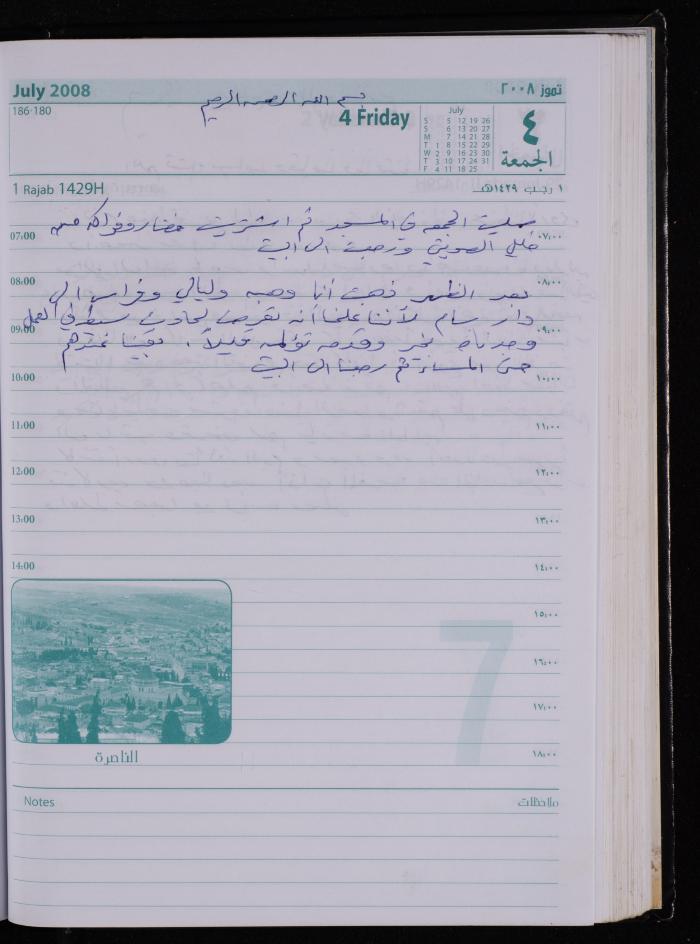 July 2008
تموز ٢٠٠٨
بسم الله الرحمن الرحيم
186-180
4 Friday
July
S 5 12 19 26
S 6 13 20 27
M 7 14 21 28
T 1 8 15 22 29
W 2 9 16 23 30
T 3 10 17 24 31
F 4 11 18 25
٤
الجمعة
1 Rajab 1429H
١ رجب ١٤٢٩هـ
صليت الجمعه في المسجد ثم اشتريت خضار وفواكه من
07:00
٠٧:٠٠
ورجعت الى البيت
08:00
٠٨:٠٠
بعد الظهر ذهبت أنا وهبه وليالي وفراس الى
دار بسام لأننا علمنا أنه تعرض لحادث بسيط في العمل
09:00
٠٩:٠٠
وجدناه بخير وقدمه تؤلمه قليلاً، بقينا عندهم
حتى المساء ثم رجعنا الى البيت
10:00
١٠:٠٠
11:00
١١:٠٠
12:00
١٢:٠٠
13:00
١٣:٠٠
14:00
١٤:٠٠
١٥:٠٠
7
١٦:٠٠
١٧:٠٠
الناصرة
١٨:٠٠
Notes
ملاحظات